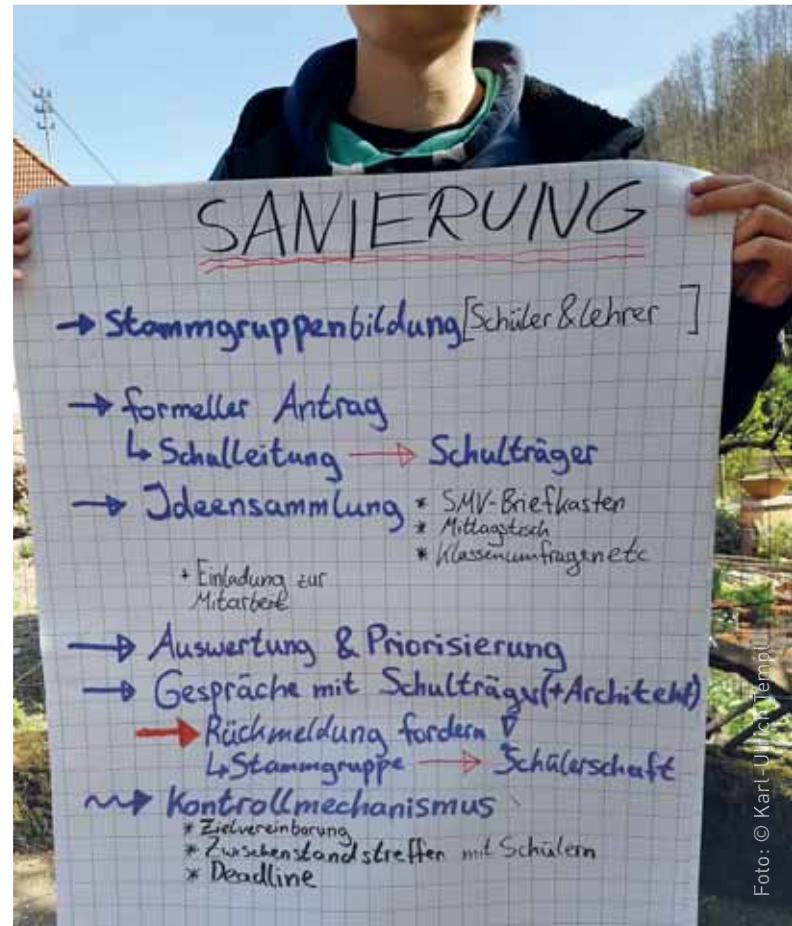 SANIERUNG
→ Stammgruppenbildung [Schüler & Lehrer]
→ formeller Antrag
↳ Schulleitung → Schulträger
→ Ideensammlung * SMV-Briefkasten
* Mittagstisch
* Klassenumfragen etc
+ Einladung zur
Mitarbeit
→ Auswertung & Priorisierung
→ Gespräche mit Schulträger (+Architekt)
→ Rückmeldung fordern !
↳ Stammgruppe → Schülerschaft
→ Kontrollmechanismus
* Zielvereinbarung
* Zwischenstandstreffen mit Schülern
* Deadline
Foto: © Karl-Ulrich Templ